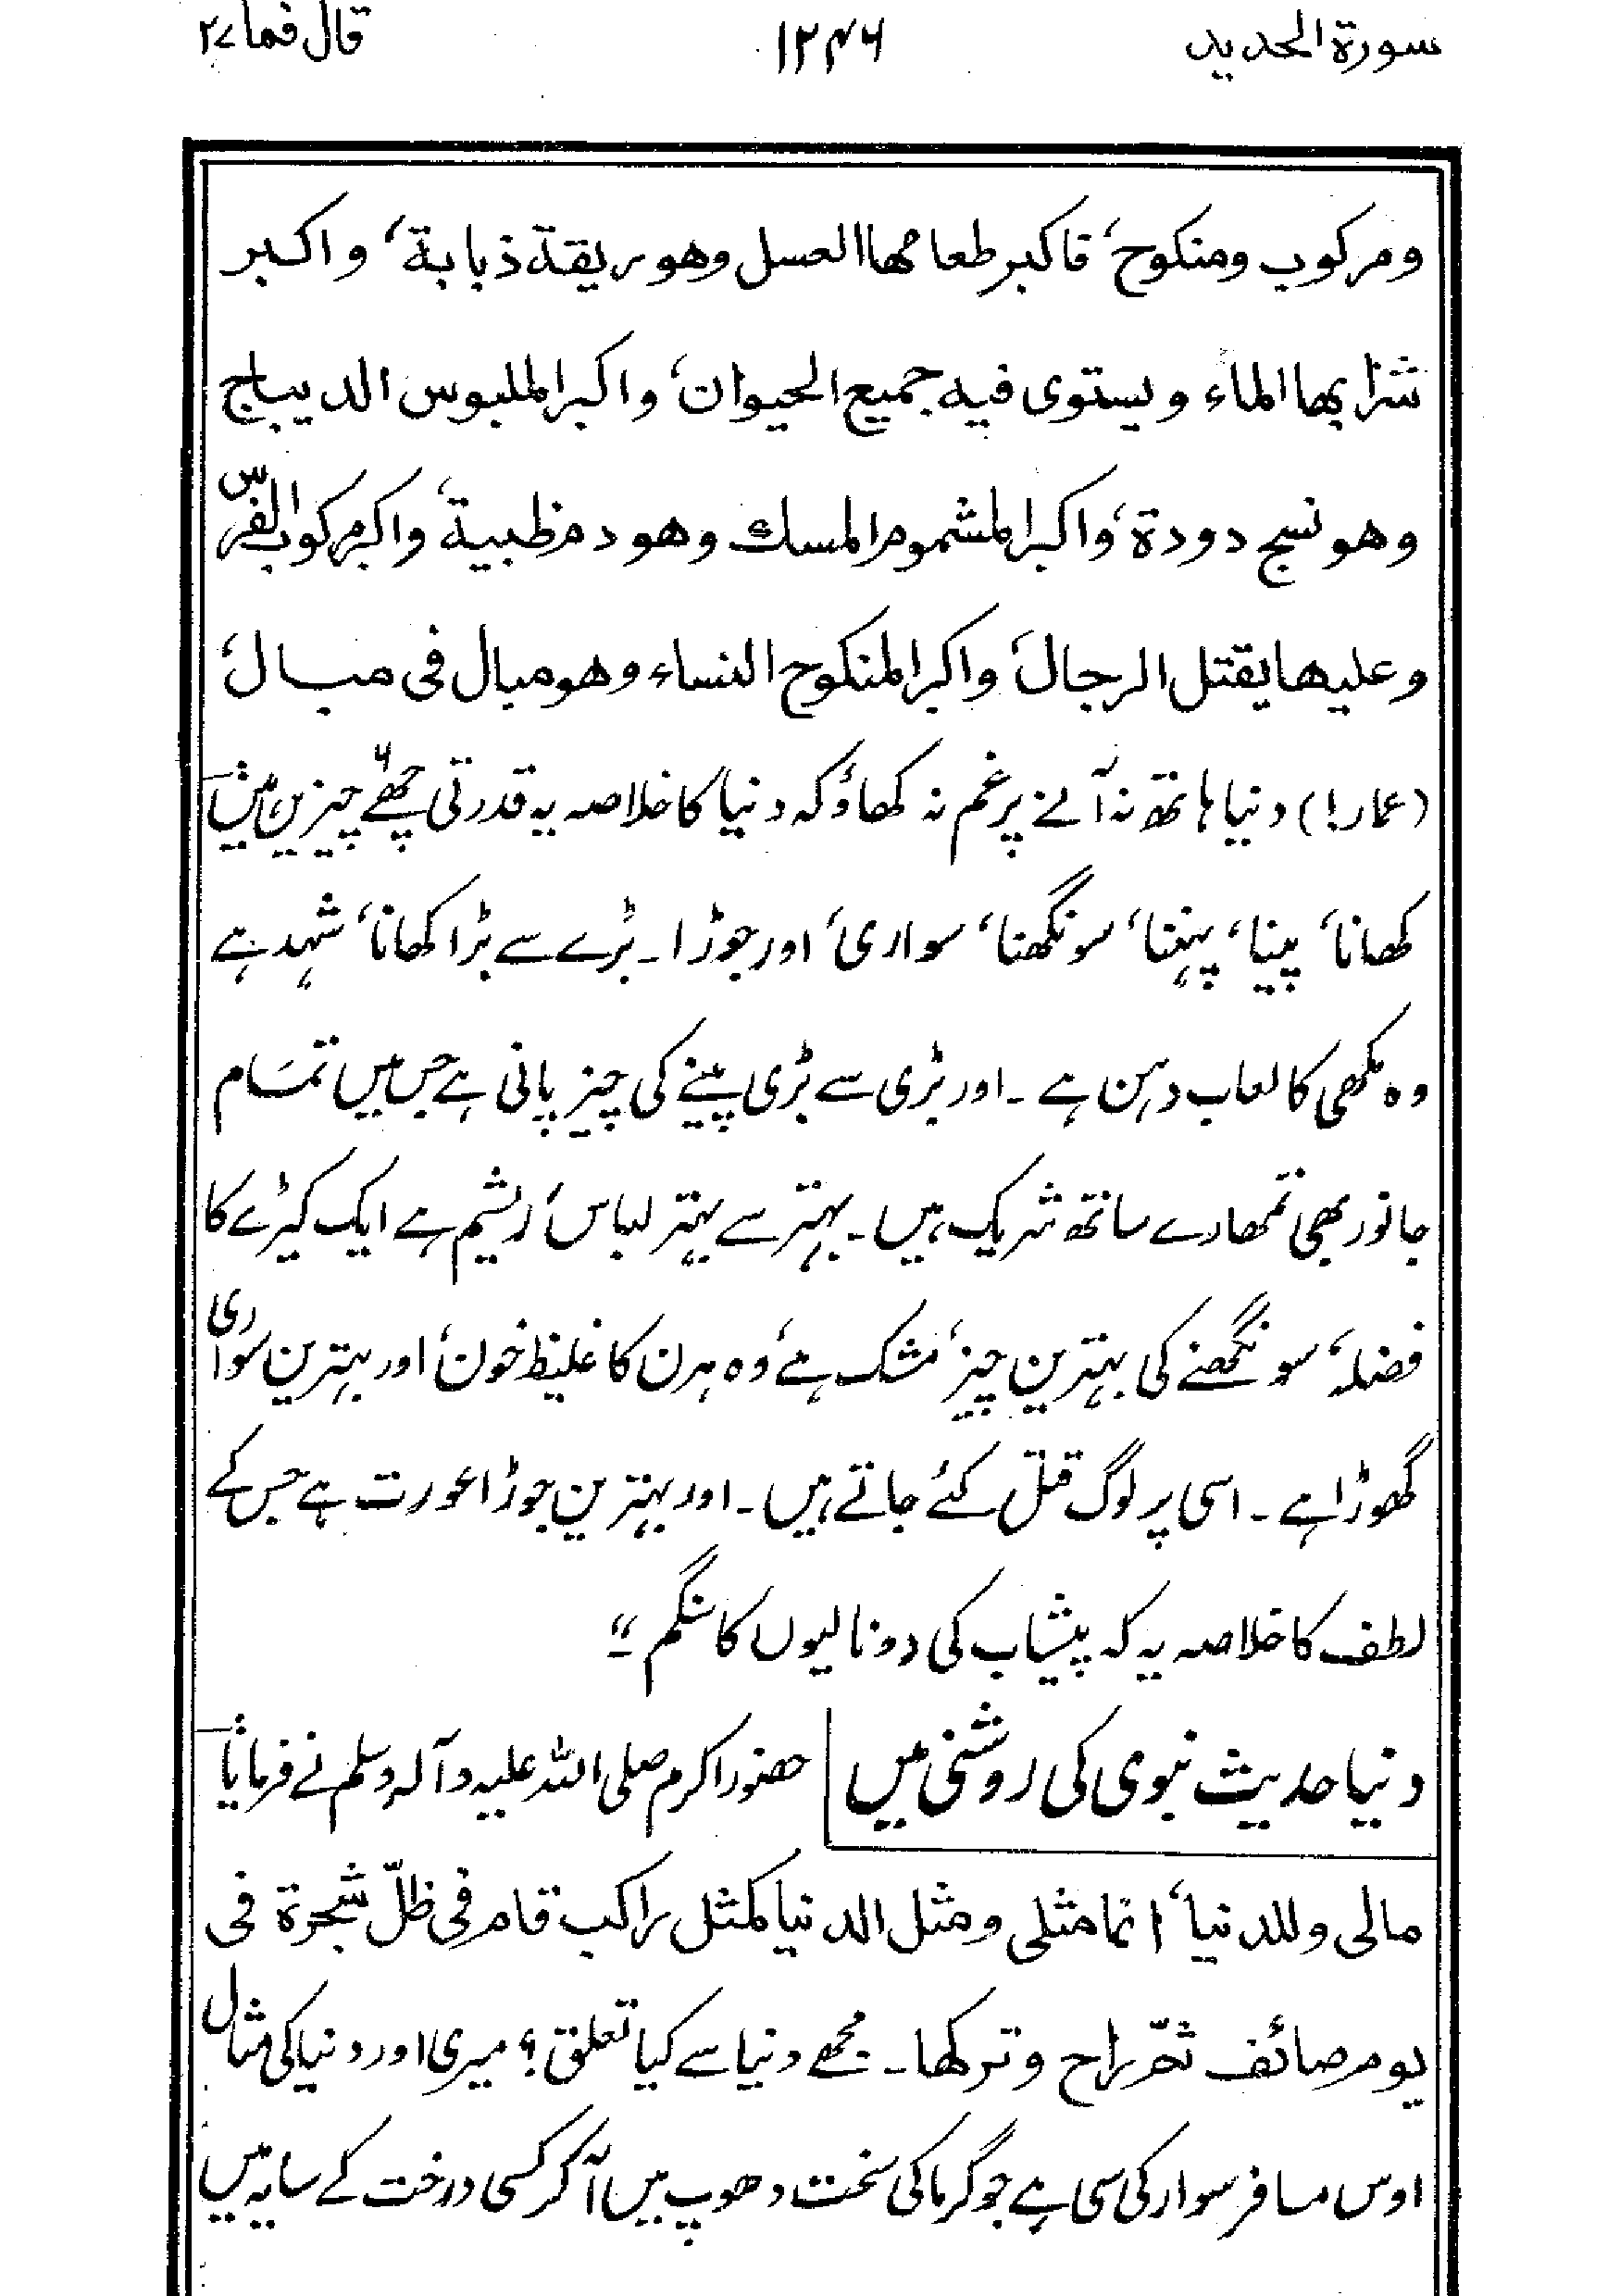 سورة الحديد ۱۲۴۶ قال فما ۲۷
ومركوب ومنكوح، فاكبر طعامها العسل وهو ريقة ذبابة، واكبر
شرابها الماء ويستوى فيه جميع الحيوان، واكبر الملبوس الديباج
وهو نسج دودة، واكبر المشموم المسك وهو دم ظبية، واكبر مركوب الفرس
وعليها يقتل الرجال، واكبر المنكوح النساء وهو مبال فى مبال،
(عمار!) دنیا ہاتھ نہ آنے پر غم نہ کھاؤ کہ دنیا کا خلاصہ یہ قدرتی چھ ۶ چیزیں ہیں
کھانا، پینا، پہننا، سونگھنا، سواری، اور جوڑا۔ بڑے سے بڑا کھانا، شہد ہے
وہ مکھی کا لعاب دہن ہے۔ اور بڑی سے بڑی پینے کی چیز پانی ہے جس میں تمام
جانور بھی تمھارے ساتھ شریک ہیں۔ بہتر سے بہتر لباس، ریشم ہے ایک کیڑے کا
فضلہ، سونگھنے کی بہترین چیز، مشک ہے، وہ ہرن کا غلیظ خون، اور بہترین سواری
گھوڑا ہے۔ اسی پر لوگ قتل کئے جاتے ہیں۔ اور بہترین جوڑا عورت ہے جس کے
لطف کا خلاصہ یہ کہ پیشاب کی دو نالیوں کا سنگم۔"
دنیا حدیث نبوی کی روشنی میں حضور اکرم صلی اللہ علیہ وآلہ وسلم نے فرمایا
مالى وللدنيا، انما مثلى ومثل الدنيا كمثل راكب قام فى ظلّ شجرة فى
يوم صائف ثمّ راح وتركها۔ مجھے دنیا سے کیا تعلق؟ میری اور دنیا کی مثال
اوس مسافر سوار کی سی ہے جو گرما کی سخت دھوپ میں آکر کسی درخت کے سایہ میں